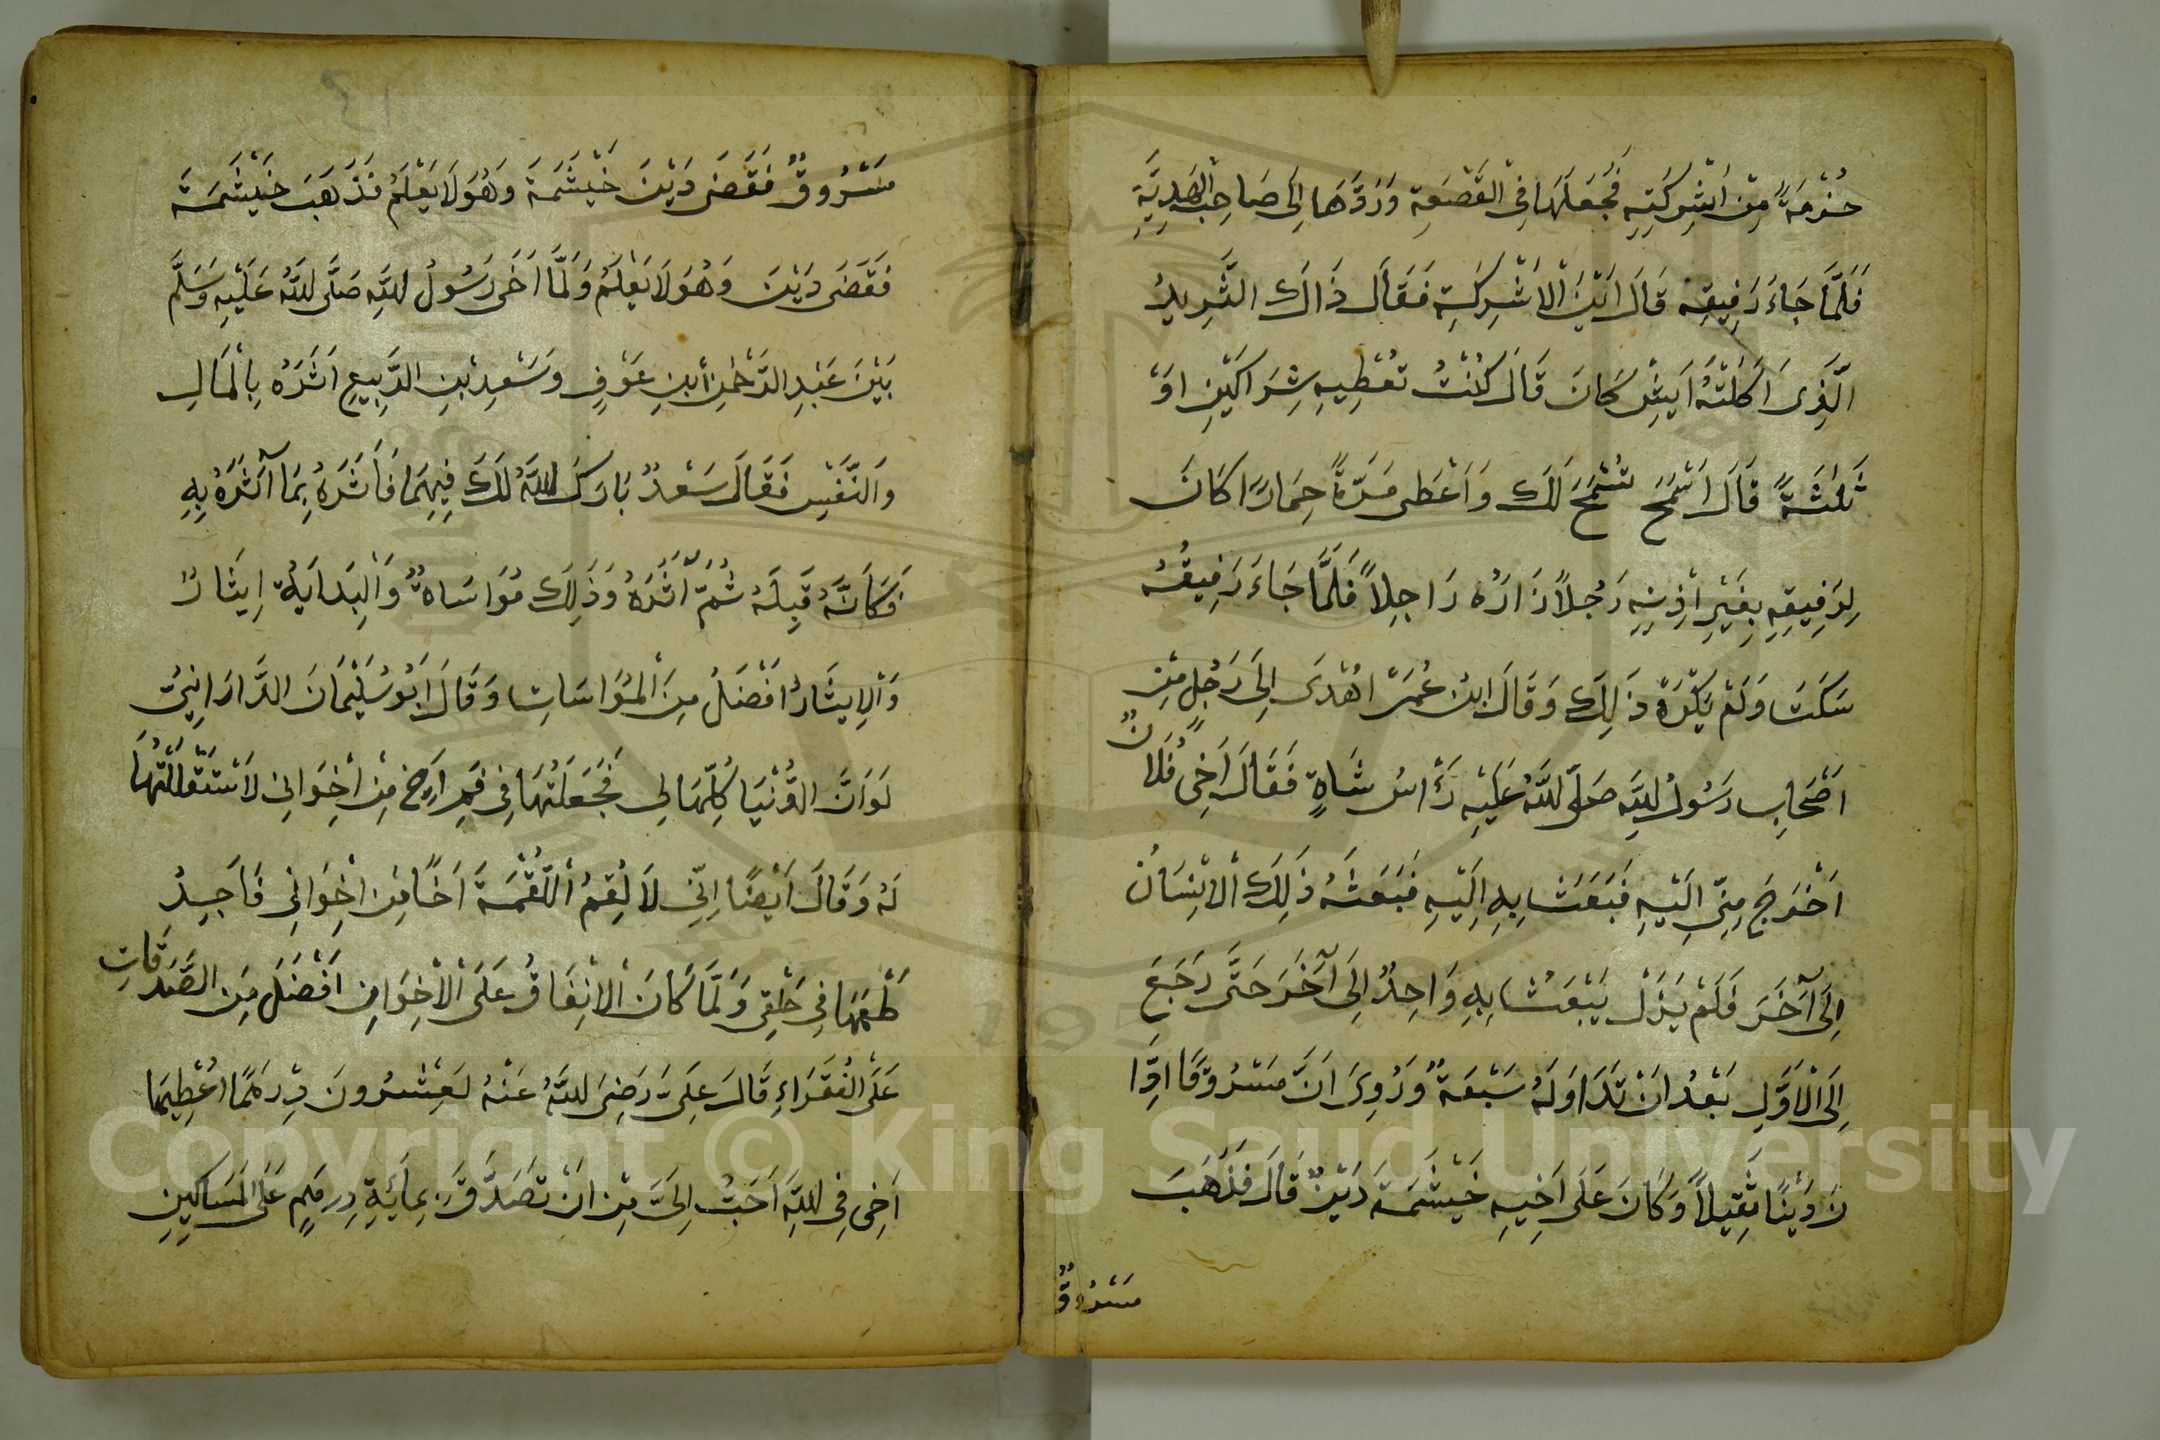 حُزْمَةً مِنْ اَشْرِكَتِهِ فَجَعَلَهَا فِي الْقَصْعَةِ وَرَدَّهَا اِلَى صَاحِبِ الْهَدِيَّةِ
فَلَمَّا جَاءَ رَفِيقُهُ قَالَ اَيْنَ الْاَشْرِكَةِ فَقَالَ ذَاكَ الثَّرِيدُ
الَّذِى اَكَلْتَهُ اَيْشِ كَانَ قَالَ كُنْتَ تُعْطِيهِ شِرَاكَيْنِ اَوْ
ثَلٰثَةً قَالَ اسْمَحْ يُسْمَحْ لَكَ وَاَعْطَى مَرَّةً حِمَارًا كَانَ
لِرَفِيقِهِ بِغَيْرِ اِذْنِهِ رَجُلاً رَآرَهُ رَاجِلاً فَلَمَّا جَاءَ رَفِيقُهُ
سَكَتَ وَلَمْ يَكْرَهْ ذٰلِكَ وَقَالَ ابْنُ عُمَرَ اهْدَى اِلَى رَجُلٍ مِنْ
اَصْحَابِ رَسُولُ اللَّهِ صَلَّى اللَّهُ عَلَيْهِ رَأْسُ شَاةٍ فَقَالَ اَخِى فُلَانٌ
اَحْوَجَ مِنِّى اِلَيْهِ فَبَعَثَ بِهِ اِلَيْهِ فَبَعَثَهُ ذٰلِكَ الْاِنْسَانُ
اِلَى آخَرَ فَلَمْ يَزَلْ يَبْعَثُ بِهِ وَاحِدٌ اِلَى آخَرَ حَتَّى رَجَعَ
اِلَى الْاَوَّلِ بَعْدَ اَنْ تَدَاوَلَهُ سَبْعَةٌ وَرُوِىَ اَنَّ مَسْرُوقًا ادَّا
نَ دَيْنًا ثَقِيلاً وَكَانَ عَلَى اَخِيهِ خَيْثَمَةَ دَيْنٌ قَالَ فَذَهَبَ
مَسْرُوقٌ
مَسْرُوقٌ فَقَضَى دَيْنَ خَيْثَمَةَ وَهُوَ لَا يَعْلَمُ فَذَهَبَ خَيْثَمَةَ
فَقَضَى دَيْنَ وَهُوَ لَا يَعْلَمُ وَلَمَّا اَخَى رَسُولُ اللَّهِ صَلَّى اللَّهُ عَلَيْهِ وَسَلَّمَ
بَيْنَ عَبْدِ الرَّحْمٰنِ ابْنِ عَوْفٍ وَسَعْدِ بْنِ الرَّبِيعِ اَثَرَهُ بِالْمَالِ
وَالنَّفْسِ فَقَالَ سَعْدٌ بَارَكَ اللَّهُ لَكَ فِيهِمَا فَاَثَرَهُ بِمَا آثَرَهُ بِهِ
فَكَاَنَّهُ قَبِلَهُ ثُمَّ آثَرَهُ وَذٰلِكَ مُوَاسَاةٌ وَالْبِدَايَةُ اِيثَارٌ
وَالْاِيثَارُ اَفْضَلُ مِنَ الْمُوَاسَاتِ وَقَالَ اَبُو سُلَيْمَانَ الدَّارَانِىُّ
لَوْ اَنَّ الدُّنْيَا كُلَّهَا لِى فَجَعَلْتُهَا فِى فَمِ اَخٍ مِنْ اَخِوَانِى لَاسْتَقْلَلْتُهَا
لَهُ وَقَالَ اَيْضًا اِنِّى لَاُلْقِمُ اللُّقْمَةَ اَخًا مِنْ اِخْوَانِى فَاَجِدُ
طَعْمَهَا فِى حَلْقِى وَلَمَّا كَانَ الْاِنْفَاقُ عَلَى الْاِخْوَانِ اَفْضَلَ مِنَ الصَّدَقَاتِ
عَلَى الْفُقَرَاءِ قَالَ عَلِىٌّ رَضِىَ اللَّهُ عَنْهُ لَعِشْرُونَ دِرْهَمًا اُعْطِيهَا
اَخِى فِى اللَّهِ اَحَبُّ اِلَىَّ مِنْ اَنْ تَصَدَّقَ بِمِائَةِ دِرْهَمٍ عَلَى الْمَسَاكِينِ
Copyright © King Saud University
1957